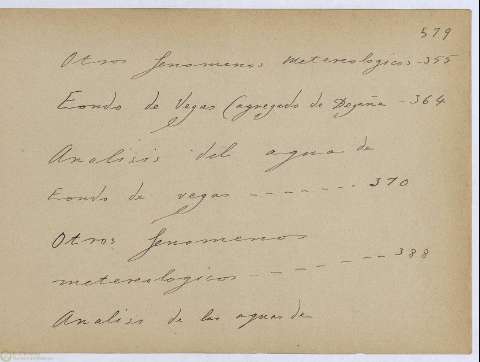 579
Otros fenomenos metereologicos - 355
Fondo de Vegas (agregado de Degaña - 364
Analisis del agua de
Fondo de vegas - - - - - - - 370
Otros fenomenos
metereologicos - - - - - - - 388
Analisis de las aguas de